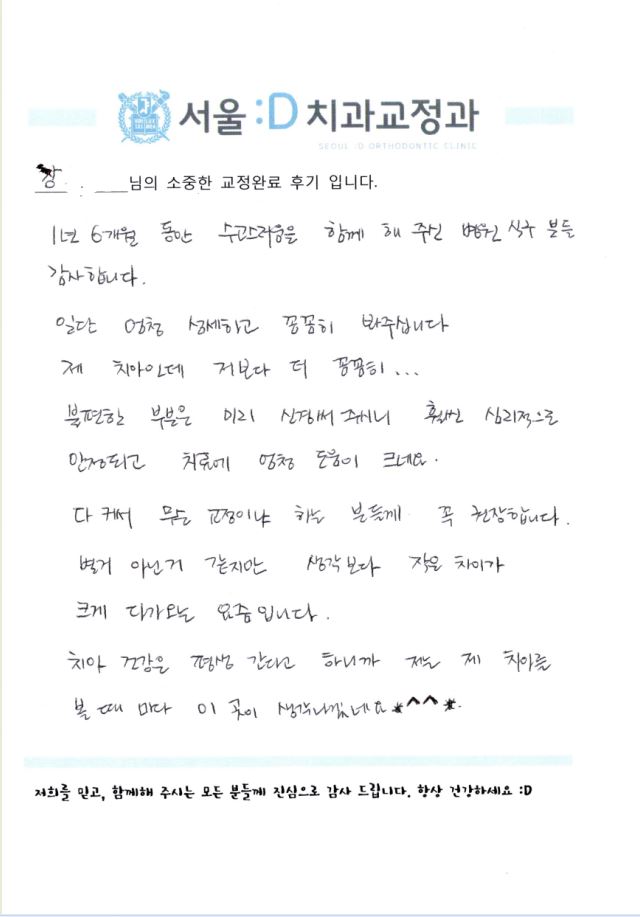 서울 :D 치과교정과
SEOUL :D ORTHODONTIC CLINIC
장 : ____님의 소중한 교정완료 후기 입니다.
1년 6개월 동안 수고스러움을 함께 해 주신 병원 식구 분들
감사합니다.
일단 엄청 상세하고 꼼꼼히 봐주십니다
제 치아인데 저보다 더 꼼꼼히...
불편한 부분은 미리 신경써 주시니 훨씬 심리적으로
안정되고 치료에 엄청 도움이 크네요.
다 커서 무슨 교정이냐 하는 분들께 꼭 권장합니다.
별거 아닌거 같지만 생각보다 작은 차이가
크게 다가오는 요즘입니다.
치아 건강은 평생 간다고 하니까 저는 제 치아를
볼 때 마다 이 곳이 생각나겠네요 *^^*.
저희를 믿고, 함께해 주시는 모든 분들께 진심으로 감사 드립니다. 항상 건강하세요 :D